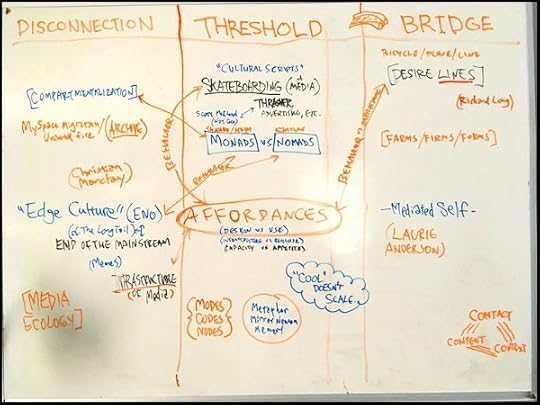 DISCONNECTION
[COMPARTMENTALIZATION]
MySpace migration/
(ARCHIVE)
Christian
Marclay
"Edge Culture" (ENO)
(or The Long Tail) of
END OF THE MAINSTREAM
(Memes)
INFRASTRUCTURE
of Media)
[MEDIA
ECOLOGY]
THRESHOLD
"CULTURAL SCRIPTS"
SKATEBOARDING (→ MEDIA)
THRASHER
ADVERTISING, ETC.
MONADS VS NOMADS
BEHAVIOR
BEHAVIOR
AFFORDANCES
(DESIGN VS USE)
(INFRASTRUCTURE VS BEHAVIOR)
CAPACITY VS APPETITES
"COOL"
DOESN'T
SCALE.
{MODES}
{CODES}
{NODES}
Metaphor
Mirror Neuron
Memory
BRIDGE
BICYCLE/PLANE/LINE
[DESIRE LINES]
(Richard Long)
BEHAVIOR VS
[FARMS/FIRMS/FORMS]
-Mediated Self-
(LAURIE
ANDERSON)
CONTACT
CONTENT
CONTEXT